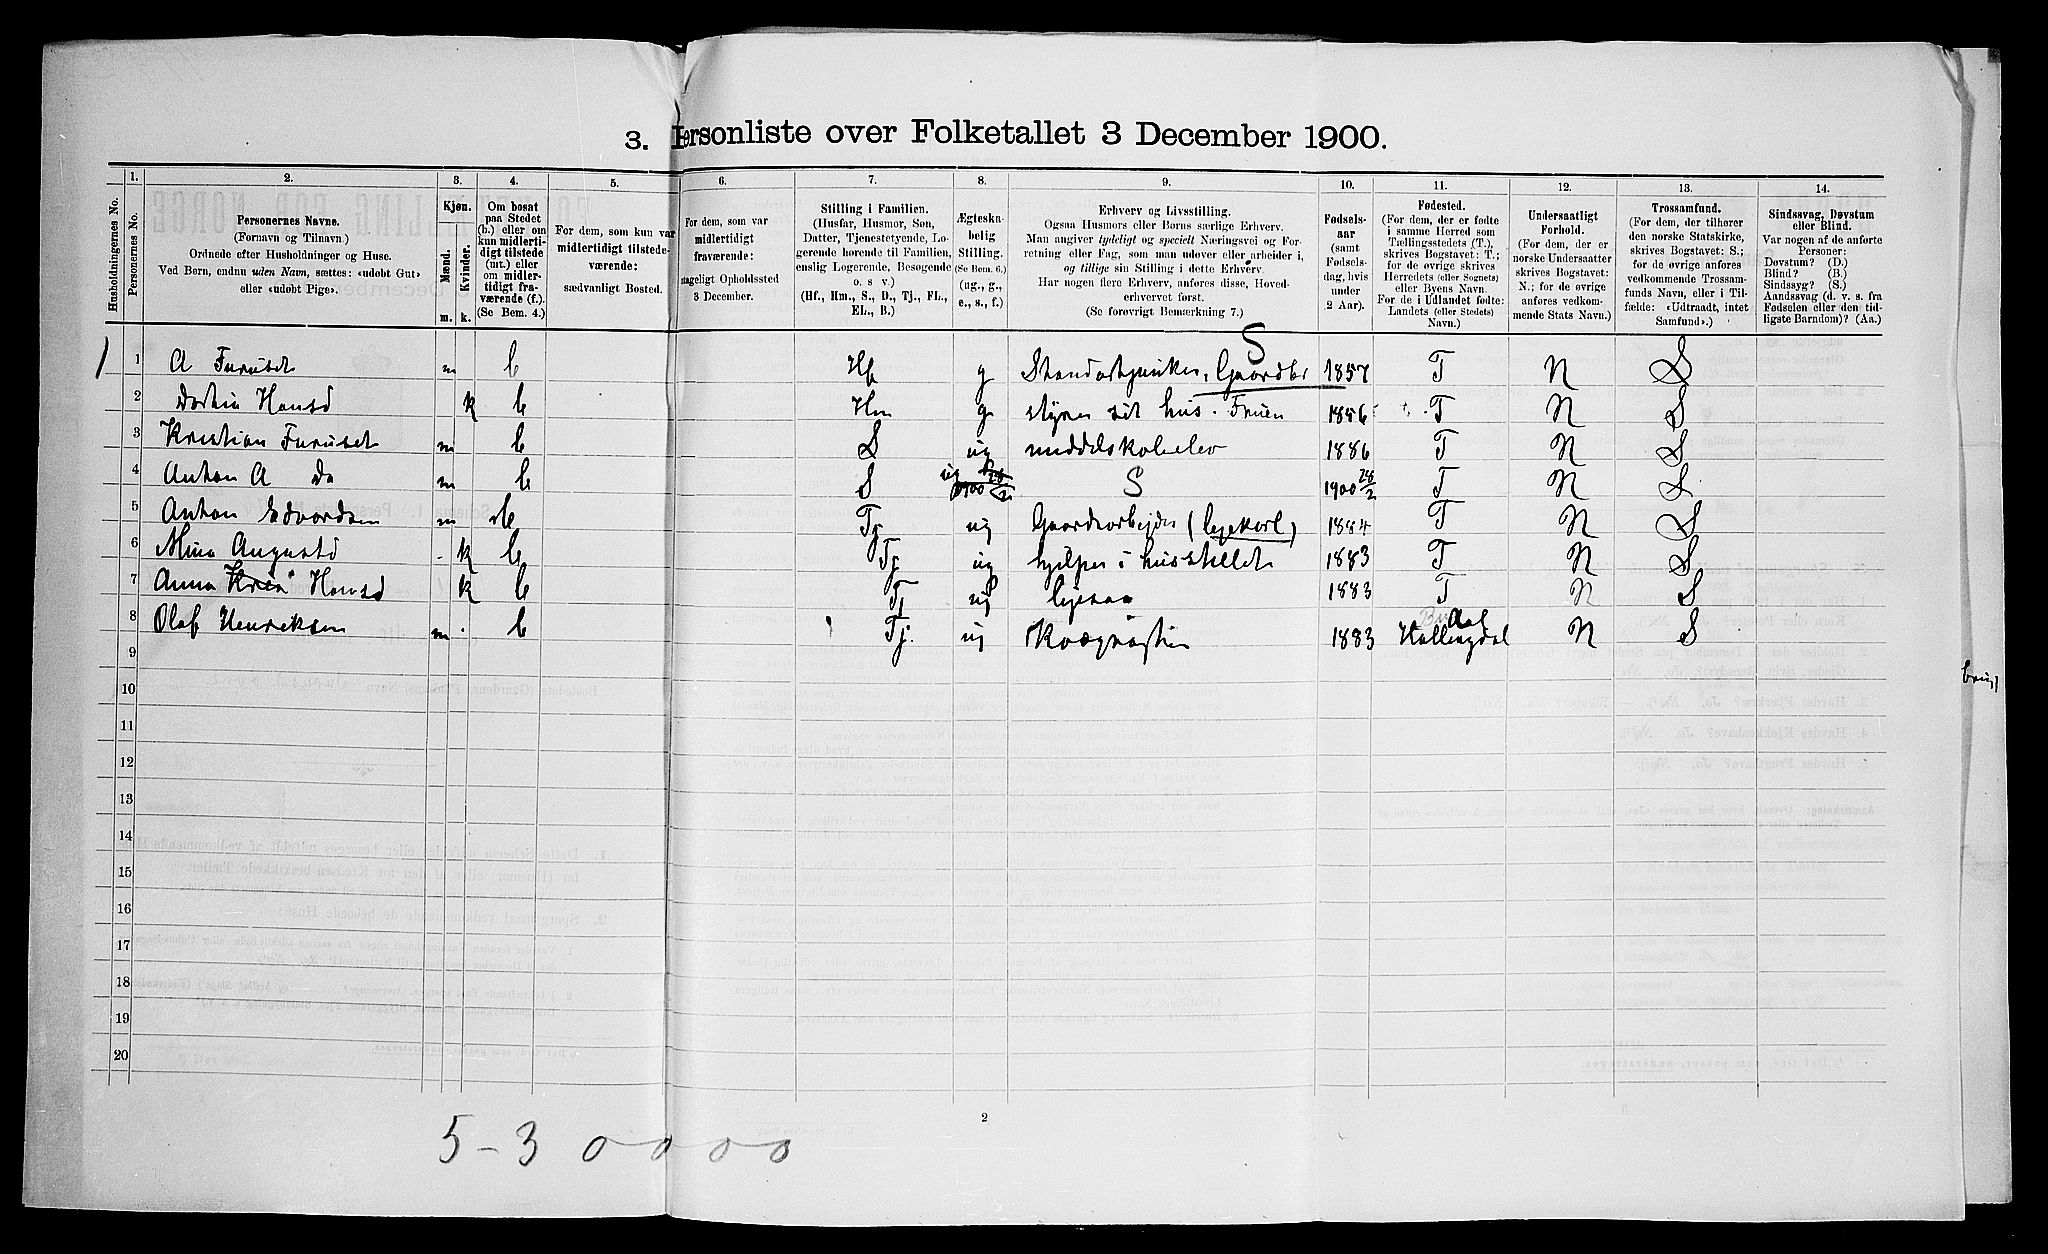 3. Personliste over Folketallet 3 December 1900.
1. 2. 3. 4. 5. 6. 7. 8. 9. 10. 11. 12. 13. 14.
Husholdningernes No.
Personernes No.
Personernes Navne.
(Fornavn og Tilnavn.)
Ordnede efter Husholdninger og Huse.
Ved Børn, endnu uden Navn, sættes: «udøbt Gut»
eller «udøbt Pige».
Kjøn.
Mænd.
Kvinder.
m. k.
Om bosat
paa Stedet
(b.) eller om
kun midlerti-
digt tilstede
(mt.) eller
om midler-
tidigt fra-
værende (f.).
(Se Bem. 4.)
For dem, som kun var
midlertidigt tilstede-
værende:
sædvanligt Bosted.
For dem, som var
midlertidigt
fraværende:
tageligt Opholdssted
3 December.
Stilling i Familien.
(Husfar, Husmor, Søn,
Datter, Tjenestetyende, Lo-
gerende hørende til Familien,
enslig Logerende, Besøgende
o. s. v.)
(Hf., Hm., S., D., Tj., FL.,
EL., B.)
Ægteska-
belig
Stilling.
(Se Bem. 6.)
(ug., g.,
e., s., f.)
Erhverv og Livsstilling.
Ogsaa Husmors eller Børns særlige Erhverv.
Man angiver tydeligt og specielt Næringsvei og For-
retning eller Fag, som man udøver eller arbeider i,
og tillige sin Stilling i dette Erhverv.
Har nogen flere Erhverv, anføres disse, Hoved-
erhvervet først.
(Se forøvrigt Bemærkning 7.)
Fødsels-
aar
(samt
Fødsels-
dag, hvis
under
2 Aar).
Fødested.
(For dem, der er fødte
i samme Herred som
Tællingsstedets (T.),
skrives Bogstavet: T.;
for de øvrige skrives
Herredets (eller Sognets)
eller Byens Navn.
For de i Udlandet fødte:
Landets (eller Stedets)
Navn.)
Undersaatligt
Forhold.
(For dem, der er
norske Undersaatter
skrives Bogstavet:
N.; for de øvrige
anføres vedkom-
mende Stats Navn.)
Trossamfund.
(For dem, der tilhører
den norske Statskirke,
skrives Bogstavet: S.;
for de øvrige anføres
vedkommende Trossam-
funds Navn, eller i Til-
fælde: «Udtraadt, intet
Samfund».)
Sindssvag, Døvstum
eller Blind.
Var nogen af de anførte
Personer:
Døvstum? (D.)
Blind? (B.)
Sindssyg? (S.)
Aandssvag (d. v. s. fra
Fødselen eller den tid-
ligste Barndom)? (Aa.)
S
1 1 A Furuset m b Hf g Gaardbr 1857 T N S
2 Hansd k b Hm g styrer sit hus. Fruen 1856 T N S
3 Kristian Furuset m b S ug middelskoleelev 1886 T N S
4 Anton A Do m b S ug S 1900 28/2 T N S
5 Anton Edvardsen m b Tj ug Gaardsarbejder (legekarl) 1884 T N S
6 Mina Augustd k b Tj ug hjelper i husstellet 1883 T N S
7 Anna Hansd k b Tj ug ligesaa 1883 T N S
8 Olaf Henriksen m b Tj. ug Kvægrøgter 1883 Aal Hallingdal N S
9
10
11
12
13
14
15
16
17
18
19
20
2
5 - 3 0 0 0 0